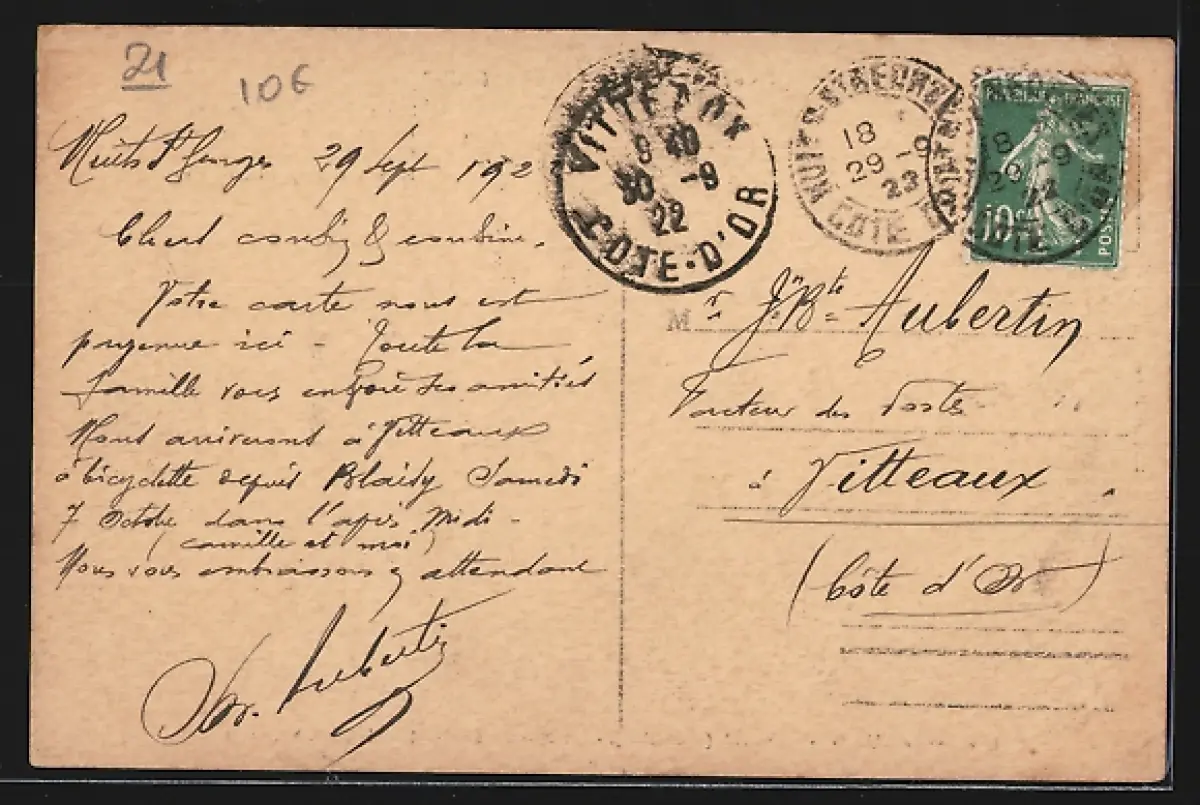 21
10€
Nuits St Georges 29 Sept 192
Chers cousin & cousine,
Votre carte nous est
parvenue ici - Toute la
famille vous envoie ses amitiés
Nous arriverons à Vitteaux
à bicyclette depuis Blaisy Samedi
7 Octobre dans l'après midi -
(camille et moi)
Nous vous embrassons en attendant
Aubertin
VITTEAUX
9 40
30 -9
22
COTE-D'OR
NUITS-ST-GEORGES
18
29 -9
COTE D'OR
18
29 -9
COTE D'OR
FRANÇAISE
10c
POSTES
Mr J.n B.te Aubertin
Facteur des Postes
à Vitteaux
(Côte d'Or)